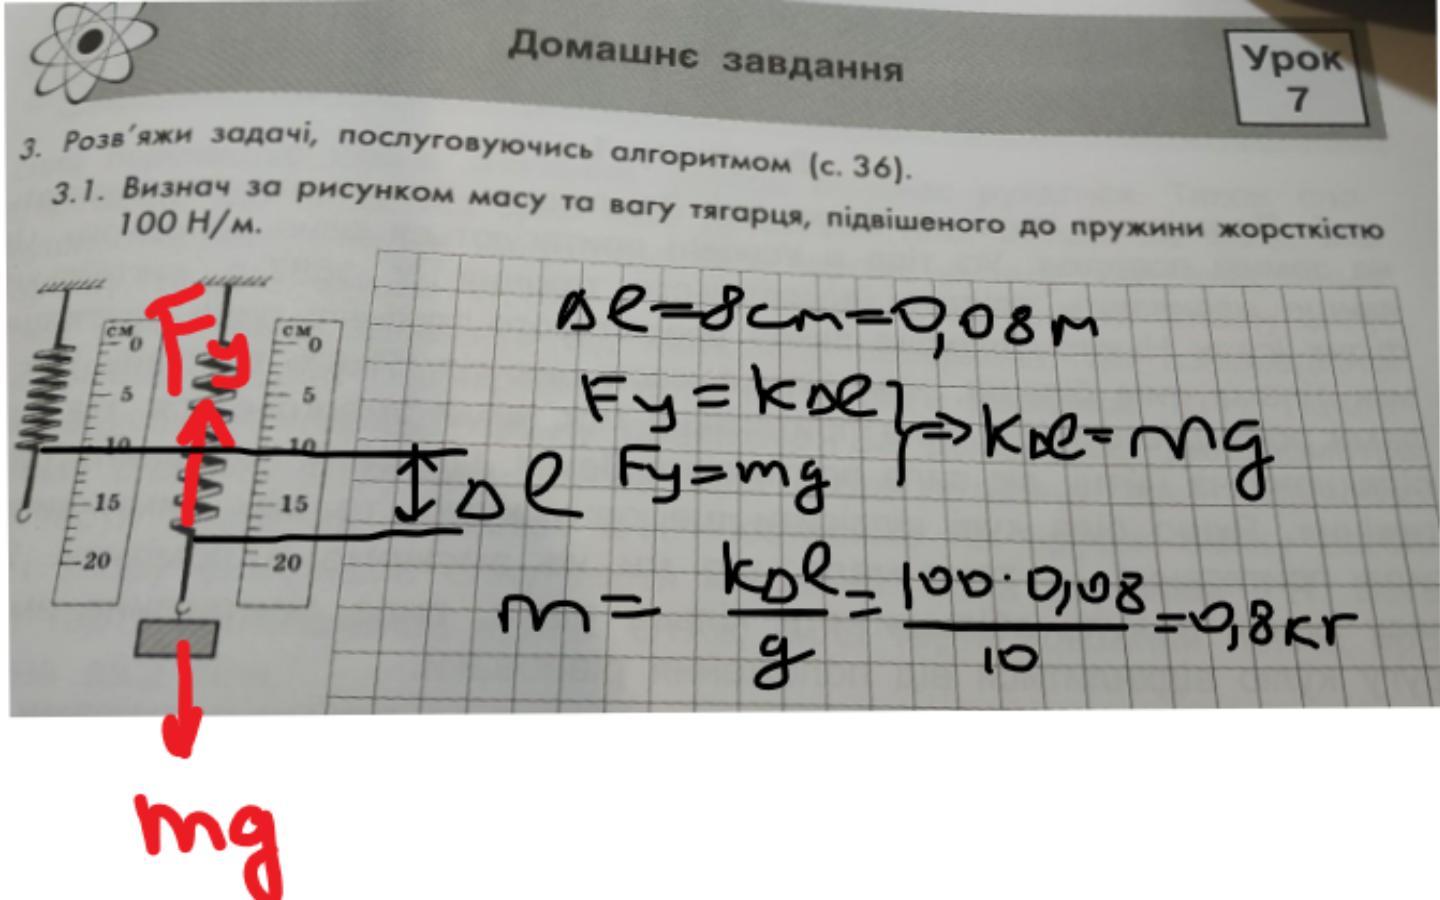 Домашнє завдання
Урок
7
3. Розв'яжи задачі, послуговуючись алгоритмом (с. 36).
3.1. Визнач за рисунком масу та вагу тягарця, підвішеного до пружини жорсткістю
100 Н/м.
см
0
5
10
15
20
Fy
см
0
5
10
15
20
Δl
mg
Δl=8cm=0,08м
Fy = kΔl
Fy=mg
⇒ kΔl=mg
m = kΔl/g = 100·0,08/10 =0,8кг